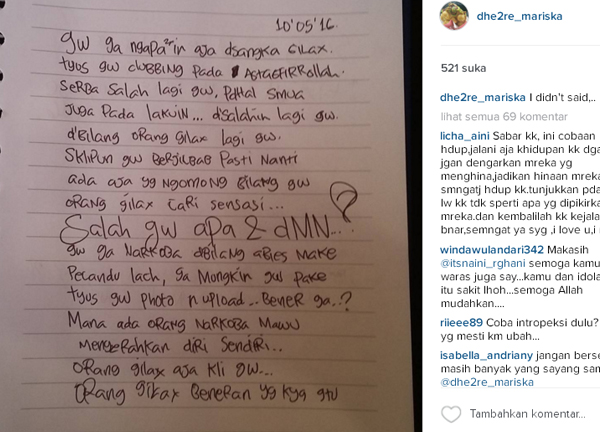 10'05'16.
gw ga ngapa²in aja dsangka GILAX.
tyus gw clubbing pada ASTAGFIRRollah.
SERBA SALAH lagi gw, PAdHal SMUA
JUGA Pada lakuin... dSalahin lagi gw.
d'Bilang ORANG gilax lagi gw.
SKIPUN gw BERJilBAB Pasti Nanti
ada aja yg NgoMong Bilang gw
ORANG gilax CARi SENSASi...
Salah gw apa & dMN...?
gw ga NARKOBA dBilang ABIES MAKE
Pecandu lach, ga Mongkin gw PAKE
tyus gw photo n upload.. BeneR ga..?
Mana ada ORANG NaRKOBA Mauu
MENYERAHKAN diRi Sendiri...
ORANG gilax aja kli gw...
ORANG gilax Beneran yg kya gtu
dhe2re_mariska
521 suka
dhe2re_mariska I didn't said,..
lihat semua 69 komentar
licha_aini Sabar kk, ini cobaan
hdup,jalani aja khidupan kk dga
jgan dengarkan mreka yg
menghina,jadikan hinaan mreka
smngatj hdup kk.tunjukkan pda
lw kk tdk sperti apa yg dipikirka
mreka.dan kembalilah kk kejala
bnar,semngat ya syg ,i love u,i n
windawulandari342 Makasih
@itsnaini_rghani semoga kamu
waras juga say...kamu dan idola
itu sakit lhoh...semoga Allah
mudahkan....
riieee89 Coba intropeksi dulu?
yg mesti km ubah...
isabella_andriany jangan berse
masih banyak yang sayang sam
@dhe2re_mariska
Tambahkan komentar...